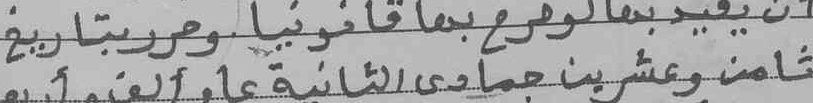 أن يفيد بها لو صرح بها قانونيا. وحرر بتاريخ
ثامن وعشرين جمادى الثانية عام ألف وأربع